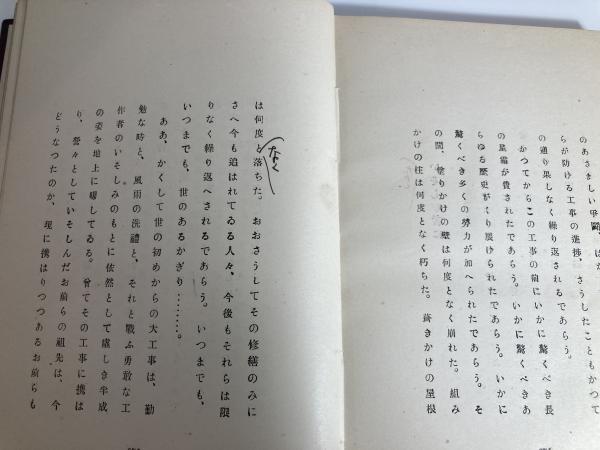 のあさましい爭鬪、はた
らが妨ける工事の進捗、さうしたこともかつて
の通り果しなく繰り返されるであらう。
かつてからこの工事の前にいかに驚くべき長
の星霜が費されたであらう。いかに驚くべきあ
らゆる歴史がくり展げられたであらう。いかに
驚くべき多くの勞力が加へられたであらう。そ
の間、塗りかけの壁は何度となく崩れた。組み
かけの柱は何度となく朽ちた。葺きかけの屋根
は何度と落ちた。おおさうしてその修繕のみに
なく
さへ今も追はれてゐる人々、今後もそれらは限
りなく繰り返へされるであらう。いつまでも、
いつまでも、世のあるかぎり………。
ああ、かくして世の初めからの大工事は、勤
勉な時と、風雨の洗禮と、それと戰ふ勇敢な工
作者のいそしみのもとに依然として虛しき半成
の姿を地上に曝してゐる。曾てその工事に携は
り、營々としていそしんだお前らの祖先は、今
どうなつたのか、現に携はりつつあるお前らも